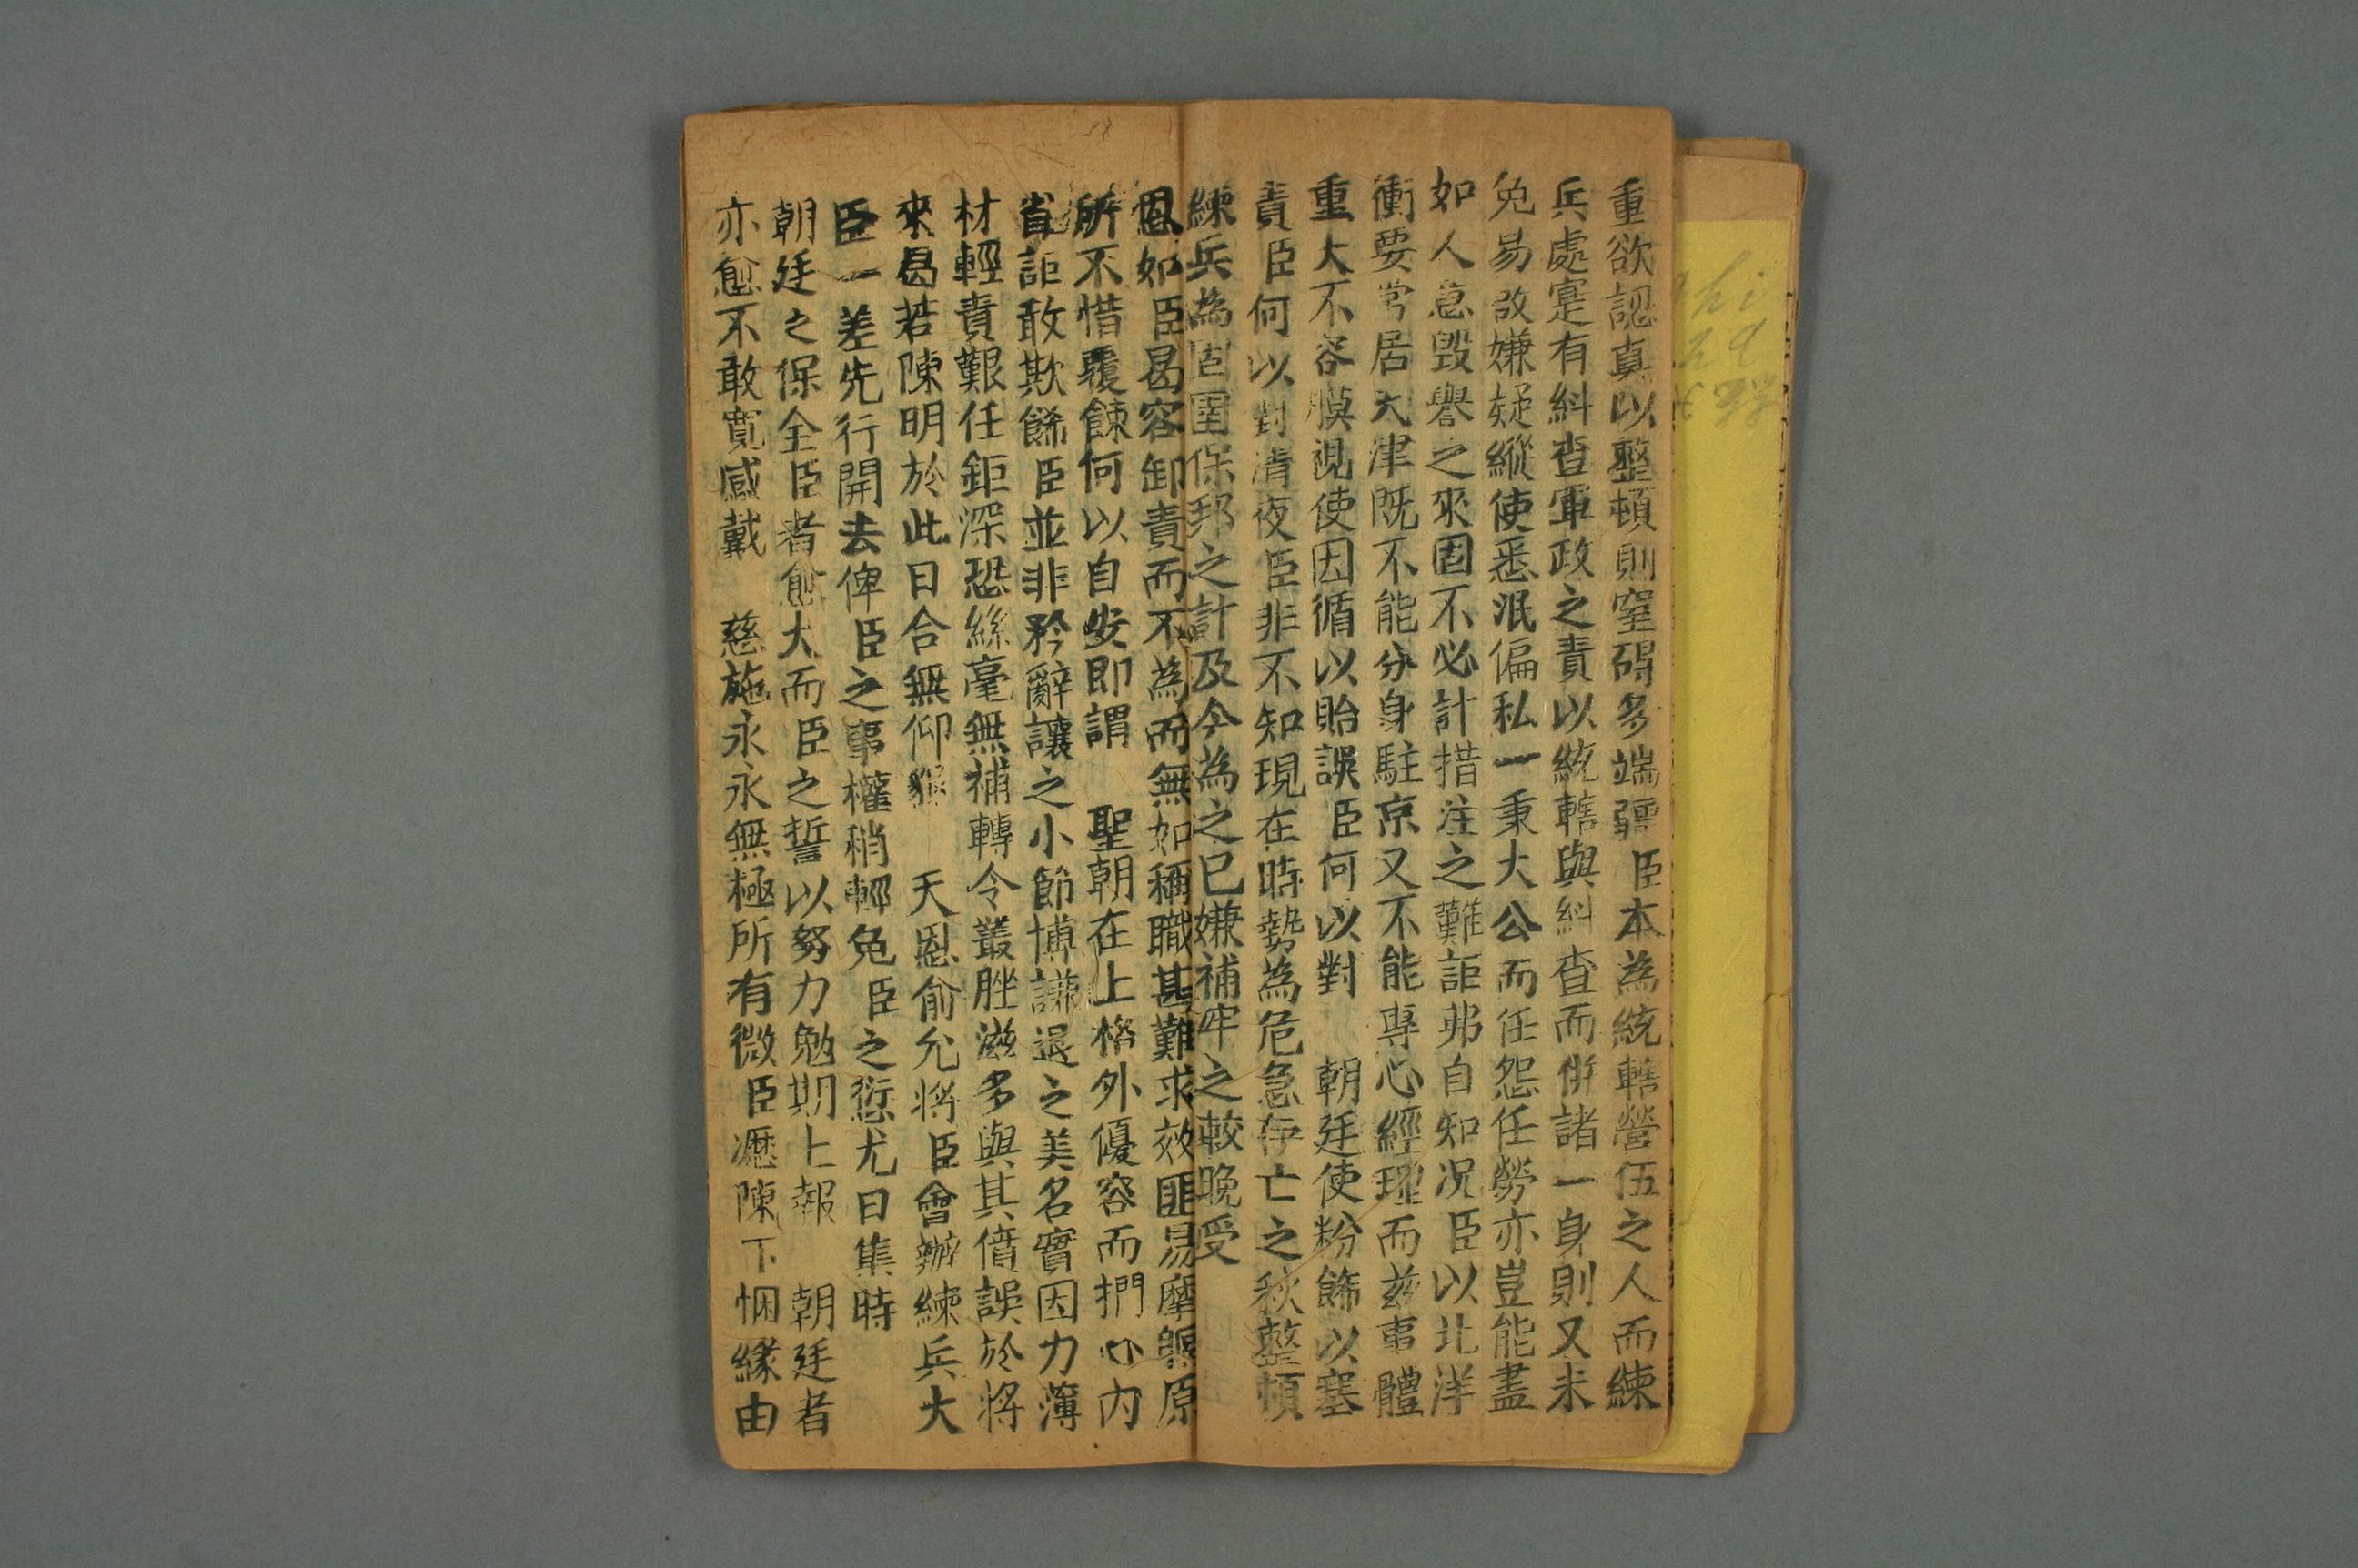 重欲認真以整頓則窒碍多端疆臣本為統轄營伍之人而練
兵處寔有糾查軍政之責以統轄與糾查而併諸一身則又未
免易啟嫌疑縱使悉泯偏私一秉大公而任怨任勞亦豈能盡
如人意毀譽之來固不必計措注之難詎弗自知况臣以北洋
衝要常居天津既不能分身駐京又不能專心經理而兹事體
重大不容膜視使因循以貽誤臣何以對 朝廷使粉飾以塞
責臣何以對清夜臣非不知現在時勢為危急存亡之秋整頓
練兵為固圉保邦之計及今為之已嫌補牢之較晚受
恩如臣曷容卸責而不為而無如稱職甚難求效匪易摩躬原
所不惜覆餗何以自安即謂 聖朝在上格外優容而捫心內
省詎敢欺餙臣並非矜辭讓之小節博謙退之美名實因力薄
材輕責艱任鉅深恐絲毫無補轉令叢脞滋多與其僨誤於將
來曷若陳明於此日合無仰懇 天恩俞允將臣會辦練兵大
臣一差先行開去俾臣之事權稍輕免臣之愆尤日集時
朝廷之保全臣者愈大而臣之誓以努力勉期上報 朝廷者
亦愈不敢寬感戴 慈施永永無極所有微臣瀝陳下悃緣由